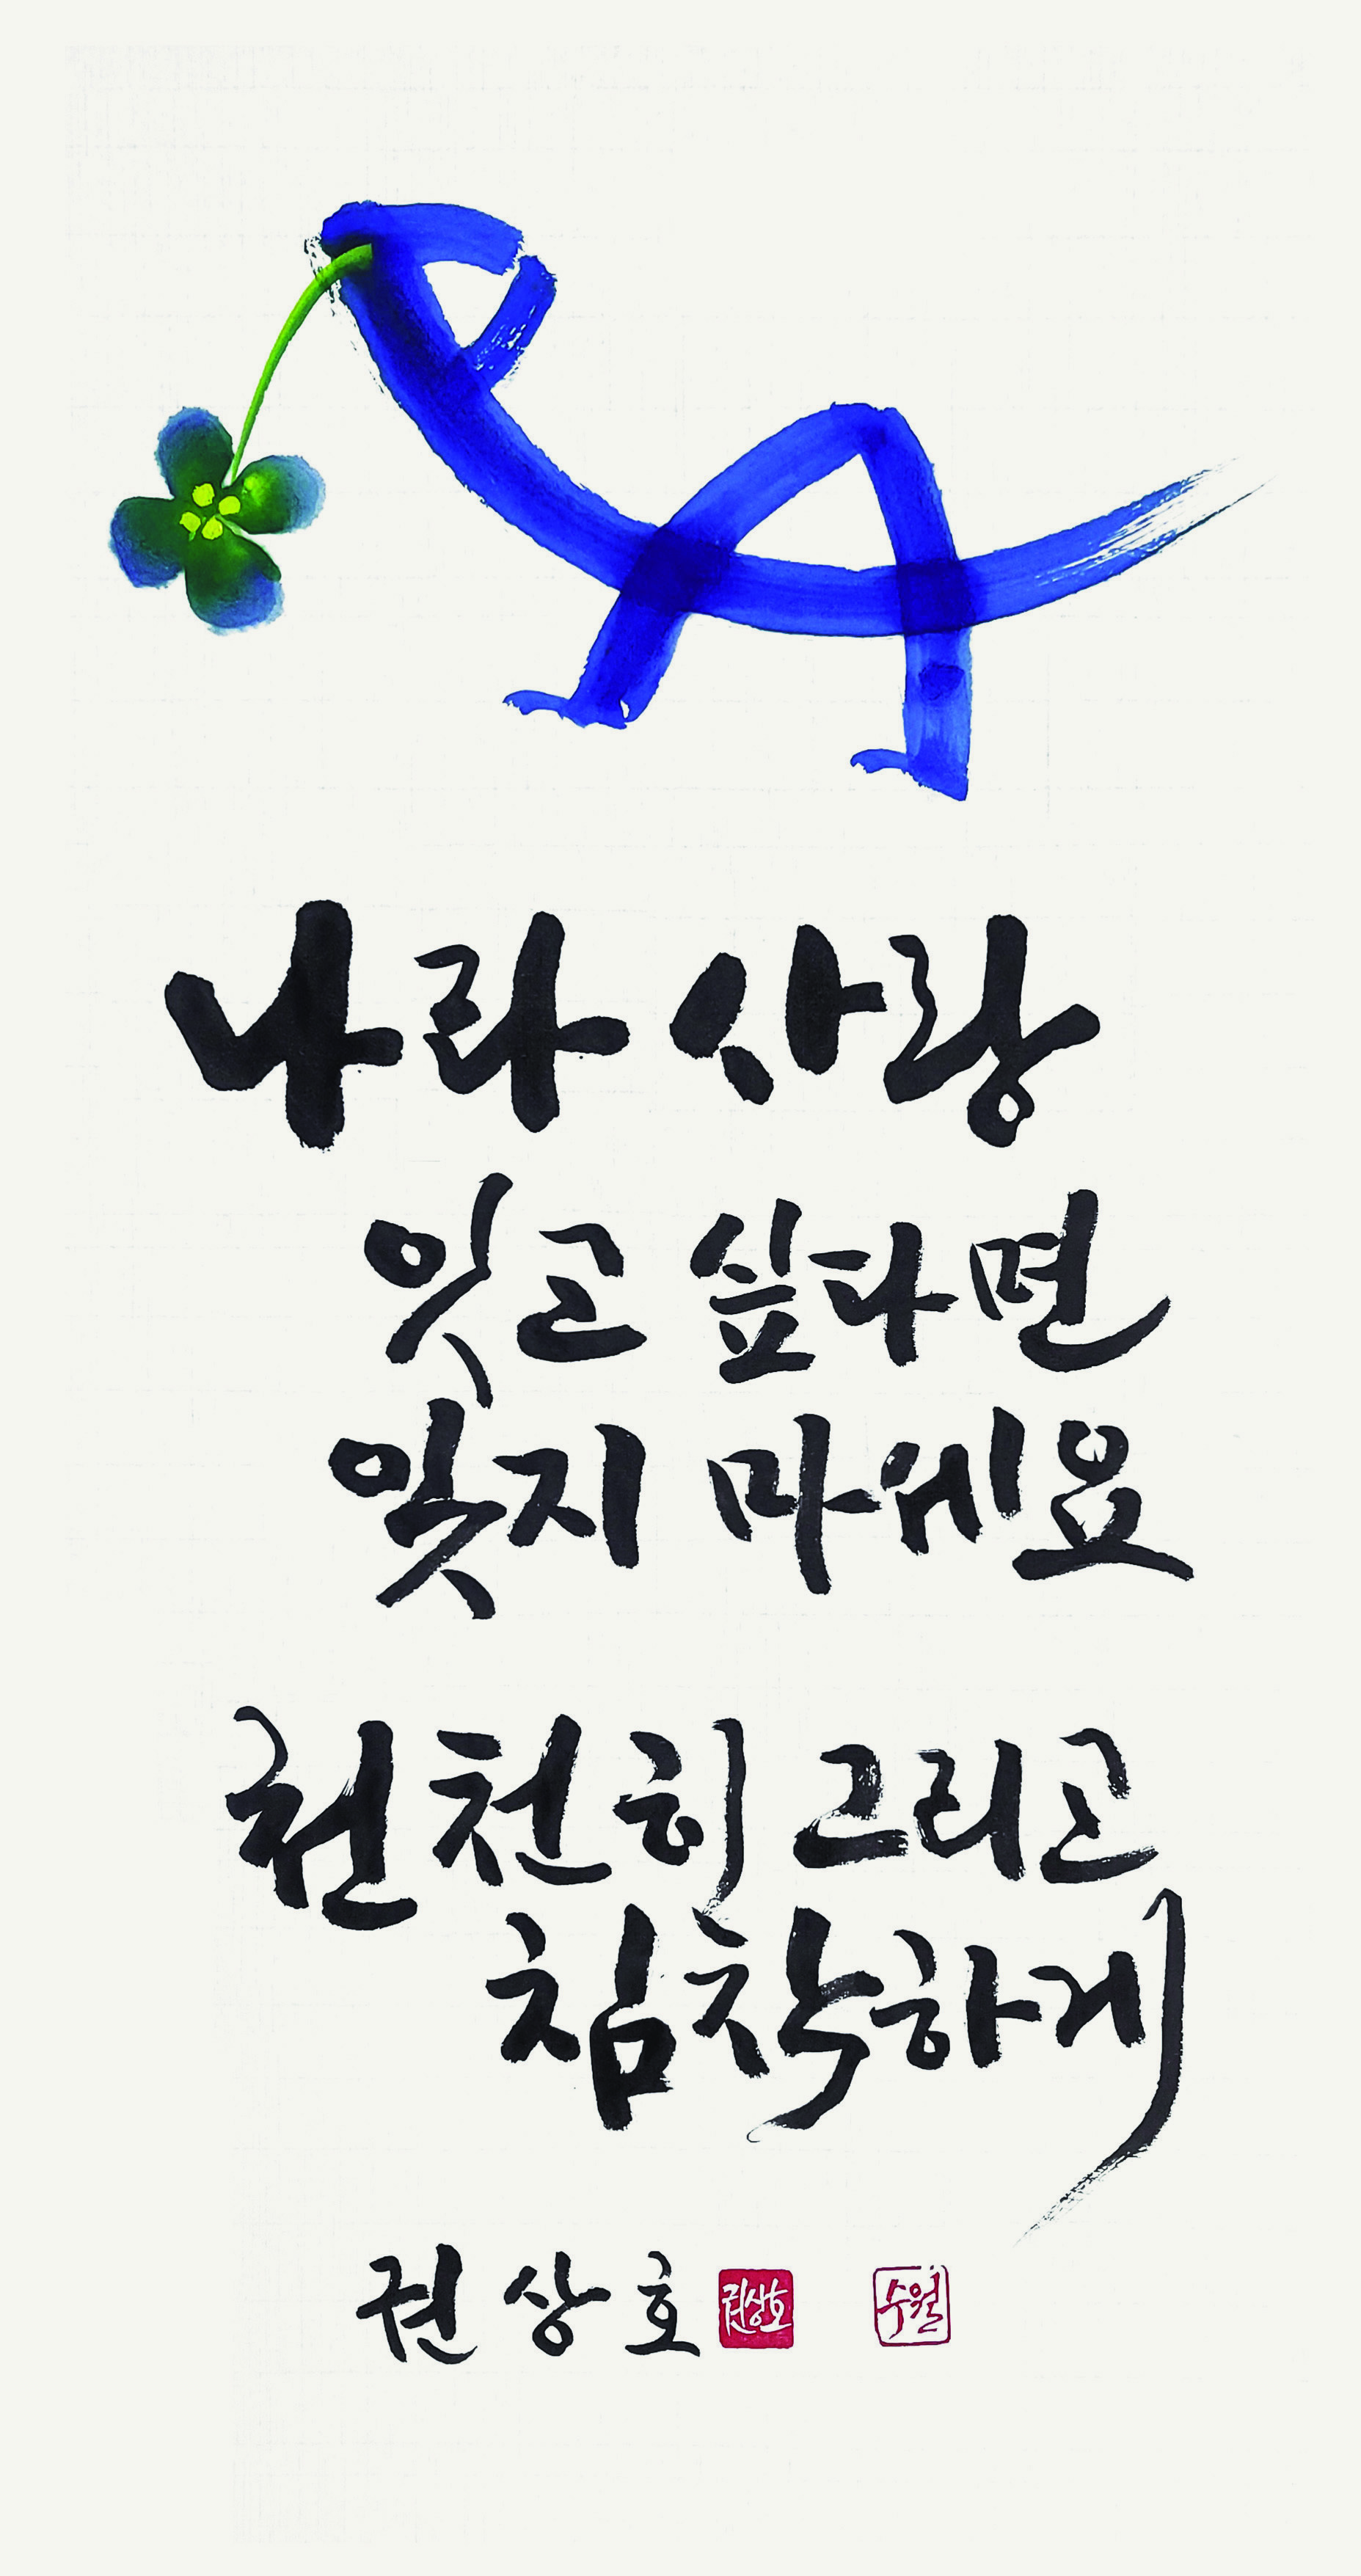 나라 사랑
잇고 싶다면
잊지 마세요
천천히 그리고
침착하게
권상호 권상호 수월